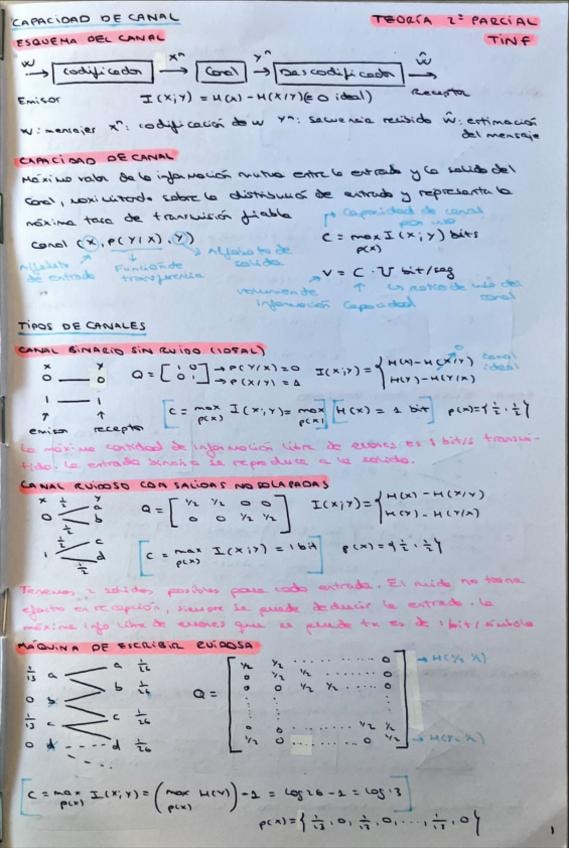 CAPACIDAD DE CANAL
TEORÍA 2º PARCIAL
ESQUEMA DEL CANAL
TINF
W → codificador → Xⁿ → Canal → Yⁿ → Descodificador → Ŵ
Emisor I(X;Y) = H(X) - H(X/Y) (=0 ideal) Receptor
W: mensajes Xⁿ: codificación de W Yⁿ: secuencia recibida Ŵ: estimación
del mensaje
CAPACIDAD DE CANAL
Máximo valor de la información mutua entre la entrada y la salida del
canal, maximizando sobre la distribución de entrada y representa la
máxima tasa de transmisión fiable
Capacidad de canal
por uso
Canal (X, P(Y/X), Y)
C = max I(X;Y) bits
p(x)
Alfabeto
de entrada
Función de
transferencia
Alfabeto de
salida
V = C · U bit/seg
volumen de
información
Capacidad
uso del
canal
TIPOS DE CANALES
CANAL BINARIO SIN RUIDO (IDEAL)
X Y
0 — 0
1 — 1
emisor receptor
Q = [1 0
0 1] → P(Y/X)=0
→ P(X/Y)=1
I(X;Y) = { H(X) - H(X/Y) 0 canal
ideal
H(Y) - H(Y/X)
[C = max I(X;Y) = max [H(X) = 1 bit] p(x) = {½, ½}
p(x) p(x)
La máxima cantidad de información libre de errores es 1 bit/s transmi-
tido. La entrada binaria se reproduce a la salida.
CANAL RUIDOSO CON SALIDAS NO SOLAPADAS
X ½ Y
0 a
b
½
½
1 c
d
½
Q = [½ ½ 0 0
0 0 ½ ½]
I(X;Y) = { H(X) - H(X/Y)
H(Y) - H(Y/X)
[C = max I(X;Y) = 1 bit] p(x) = {½, ½}
p(x)
Tenemos 2 salidas posibles para cada entrada. El ruido no tiene
efecto en recepción, siempre se puede deducir la entrada. La
máxima info libre de errores que se puede tx es de 1 bit/símbolo
MÁQUINA DE ESCRIBIR RUIDOSA
1/13 a a 1/26
0 b b 1/26
1/13 c c 1/26
0 d d 1/26
Q = [½ ½ ........ 0
0 ½ ½ ...... 0
0 0 ½ ½ .... 0
0 0 ........ ½ ½
½ 0 ...... 0 ½]
→ H(½ ½)
→ H(½ ½)
[C = max I(X;Y) = (max H(Y)) - 1 = log 26 - 1 = log 13]
p(x) p(x)
p(x) = {1/13, 0, 1/13, 0, ..., 1/13, 0}
1